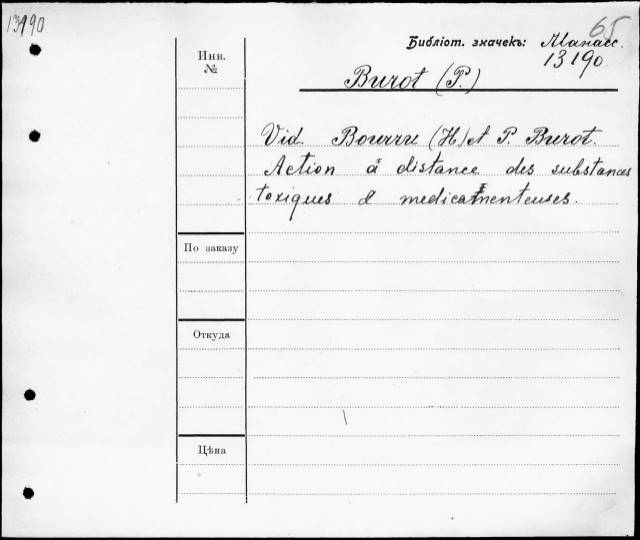 13190
65
Библіот. значекъ: Манасс.
13190
Инв.
№
Burot (P.)
Vid. Bourru (H) et P. Burot.
Action à distance des substances
toxiques & medicamenteuses.
По заказу
Откуда
Цѣна